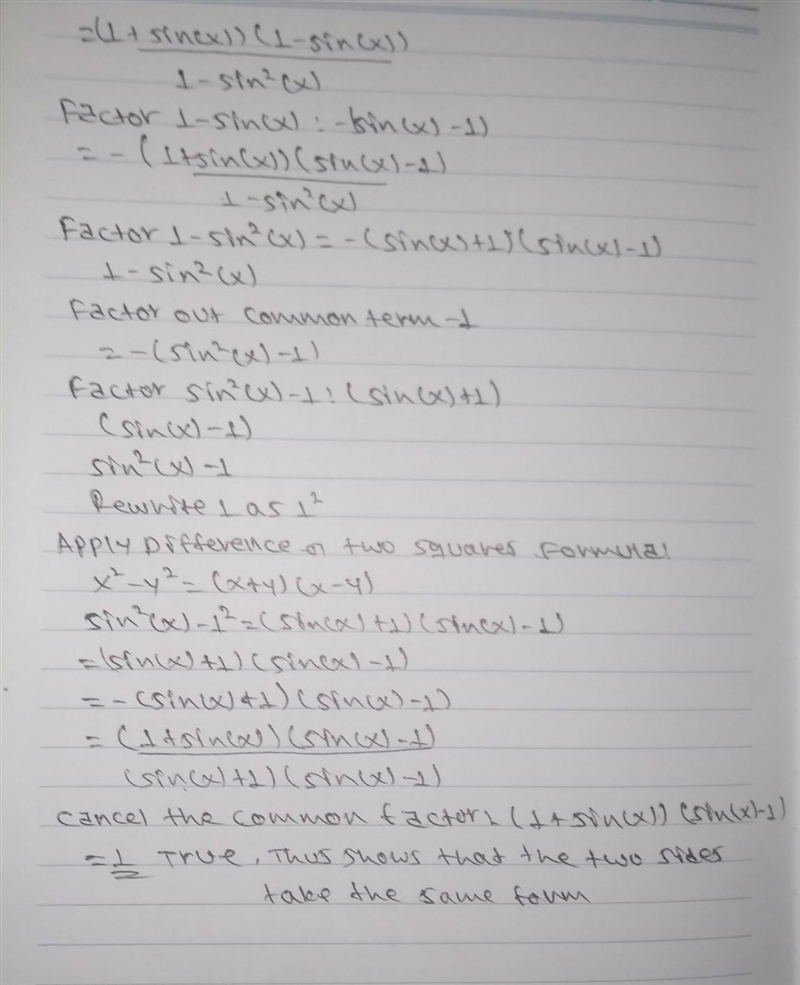 =(1+sin(x))(1-sin(x))
1-sin²(x)
Factor 1-sin(x): -(sin(x)-1)
= -(1+sin(x))(sin(x)-1)
1-sin²(x)
Factor 1-sin²(x)=-(sin(x)+1)(sin(x)-1)
1-sin²(x)
Factor out common term-1
=-(sin²(x)-1)
Factor sin²(x)-1:(sin(x)+1)
(sin(x)-1)
sin²(x)-1
Rewrite 1 as 1²
Apply Difference of two squares Formula!
x²-y²=(x+y)(x-y)
sin²(x)-1²=(sin(x)+1)(sin(x)-1)
=(sin(x)+1)(sin(x)-1)
=-(sin(x)+1)(sin(x)-1)
=(1+sin(x))(sin(x)-1)
(sin(x)+1)(sin(x)-1)
Cancel the common factor: (1+sin(x))(sin(x)-1)
=1 True, Thus shows that the two sides
take the same form